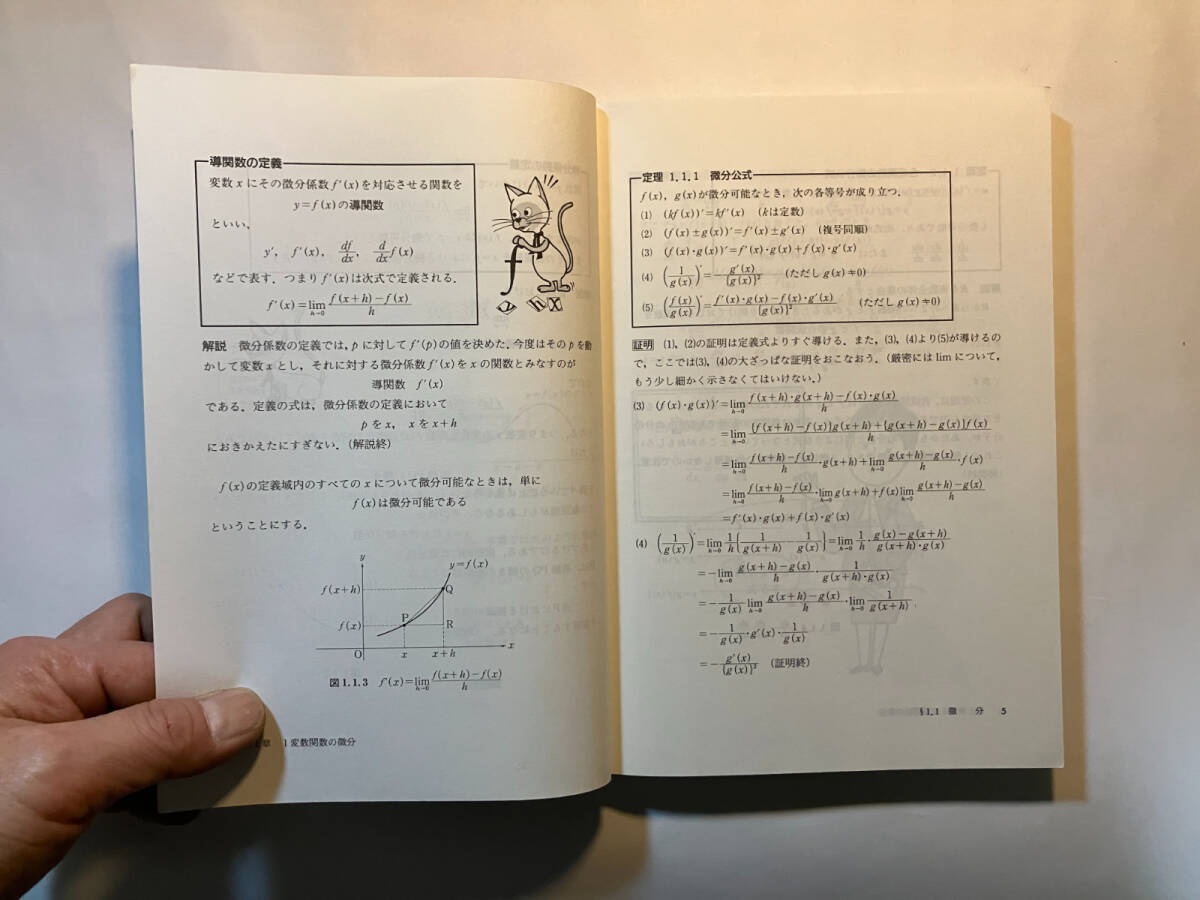 導関数の定義
変数 x にその微分係数 f′(x) を対応させる関数を
y=f(x) の導関数
といい，
y′,　f′(x),　df/dx,　d/dx f(x)
などで表す．つまり f′(x) は次式で定義される．
f′(x)=lim h→0 f(x+h)−f(x)/h
解説　微分係数の定義では，p に対して f′(p) の値を決めた．今度はその p を動
かして変数 x とし，それに対する微分係数 f′(x) を x の関数とみなすのが
導関数　f′(x)
である．定義の式は，微分係数の定義において
p を x，x を x+h
におきかえたにすぎない．（解説終）
f(x) の定義域内のすべての x について微分可能なときは，単に
f(x) は微分可能である
ということにする．
y
y=f(x)
f(x+h)
Q
f(x)
P
R
O
x
x+h
x
図1.1.3　f′(x)=lim h→0 f(x+h)−f(x)/h
章　1変数関数の微分
定理 1.1.1　微分公式
f(x)，g(x) が微分可能なとき，次の各等号が成り立つ．
(1)　(kf(x))′=kf′(x)　（k は定数）
(2)　(f(x)±g(x))′=f′(x)±g′(x)　（複号同順）
(3)　(f(x)·g(x))′=f′(x)·g(x)+f(x)·g′(x)
(4)　(1/g(x))′=−g′(x)/{g(x)}²　（ただし g(x)≠0）
(5)　(f(x)/g(x))′=f′(x)·g(x)−f(x)·g′(x)/{g(x)}²　（ただし g(x)≠0）
証明　(1)，(2)の証明は定義式よりすぐ導ける．また，(3)，(4)より(5)が導けるの
で，ここでは(3)，(4)の大ざっぱな証明をおこなおう．（厳密には lim について，
もう少し細かく示さなくてはいけない．）
(3)　(f(x)·g(x))′=lim h→0 f(x+h)·g(x+h)−f(x)·g(x)/h
=lim h→0 {f(x+h)−f(x)}g(x+h)+{g(x+h)−g(x)}f(x)/h
=lim h→0 f(x+h)−f(x)/h·g(x+h)+lim h→0 g(x+h)−g(x)/h·f(x)
=lim h→0 f(x+h)−f(x)/h·lim h→0 g(x+h)+f(x) lim h→0 g(x+h)−g(x)/h
=f′(x)·g(x)+f(x)·g′(x)
(4)　(1/g(x))′=lim h→0 1/h{1/g(x+h)−1/g(x)}=lim h→0 1/h·g(x)−g(x+h)/g(x+h)·g(x)
=−lim h→0 g(x+h)−g(x)/h·1/g(x+h)·g(x)
=−1/g(x) lim h→0 g(x+h)−g(x)/h·lim h→0 1/g(x+h)
=−1/g(x)·g′(x)·1/g(x)
=−g′(x)/{g(x)}²　（証明終）
§1.1　微　分　5